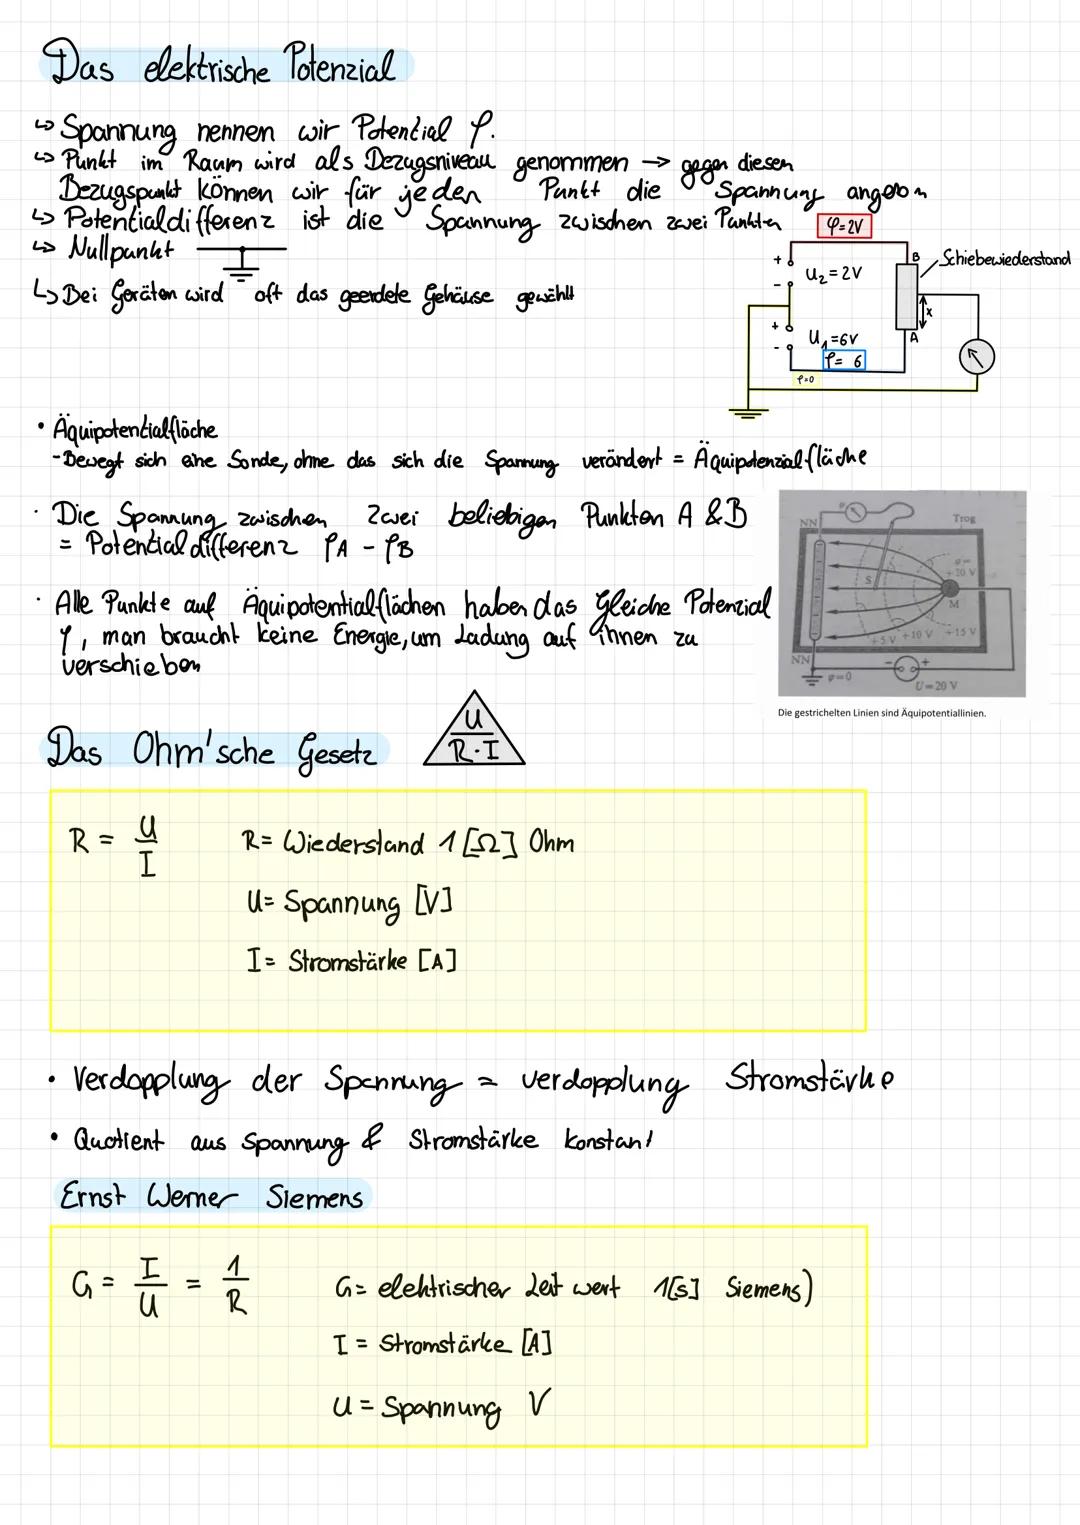 Das elektrische Potenzial
↳ Spannung nennen wir Potential φ.
↳ Punkt im Raum wird als Bezugsniveau genommen → gegen diesen
Bezugspunkt können wir für jeden Punkt die Spannung angeben
↳ Potentialdifferenz ist die Spannung zwischen zwei Punkten
↳ Nullpunkt
↳ Bei Geräten wird oft das geerdete Gehäuse gewählt
φ=2V
+
U₂=2V
-
B
Schiebewiederstand
x
+
U₁=6V
-
A
φ= 6
φ=0
• Äquipotentialfläche
-Bewegt sich eine Sonde, ohne das sich die Spannung verändert = Äquipotenzialfläche
· Die Spannung zwischen zwei beliebigen Punkten A & B
= Potentialdifferenz φA - φB
· Alle Punkte auf Äquipotentialflächen haben das gleiche Potenzial
φ, man braucht keine Energie, um Ladung auf ihnen zu
verschieben
NN
Trog
φ=
+20 V
S
M
+5 V +10 V +15 V
NN
- +
φ=0
U=20 V
Die gestrichelten Linien sind Äquipotentiallinien.
Das Ohm'sche Gesetz
U
R·I
R = U/I
R= Wiederstand 1 [Ω] Ohm
U= Spannung [V]
I= Stromstärke [A]
• Verdopplung der Spannung = verdopplung Stromstärke
• Quotient aus Spannung & Stromstärke konstant
Ernst Werner Siemens
G = I/U = 1/R
G= elektrischer Leit wert 1[s] Siemens)
I = Stromstärke [A]
U = Spannung V